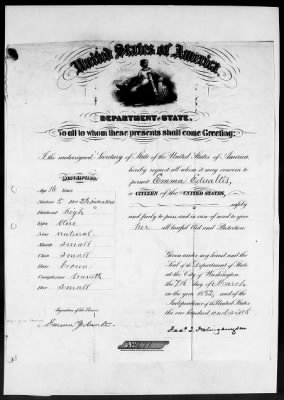 United States of America.
DEPARTMENT OF STATE.
To all to whom these presents shall come Greeting:
I the undersigned, Secretary of State of the United States of America
hereby request all whom it may concern to
permit Emma Edwalts,
a CITIZEN of the UNITED STATES,
safely
and freely to pass and in case of need to give
her all lawful Aid and Protection.
DESCRIPTION
Age 16 Years
Stature 5 Feet 2½ Inches Eng.
Forehead high
Eyes
Nose natural
Mouth small
Chin small
Hair brown
Complexion smooth
Face small
Signature of the Bearer
Emma Edwalts
Given under my hand and the
Seal of the Department of State
at the City of Washington
the 7th day of March
in the year 1882, and of the
Independence of the United States
the one hundred and sixth
Fred. T. Frelinghuysen